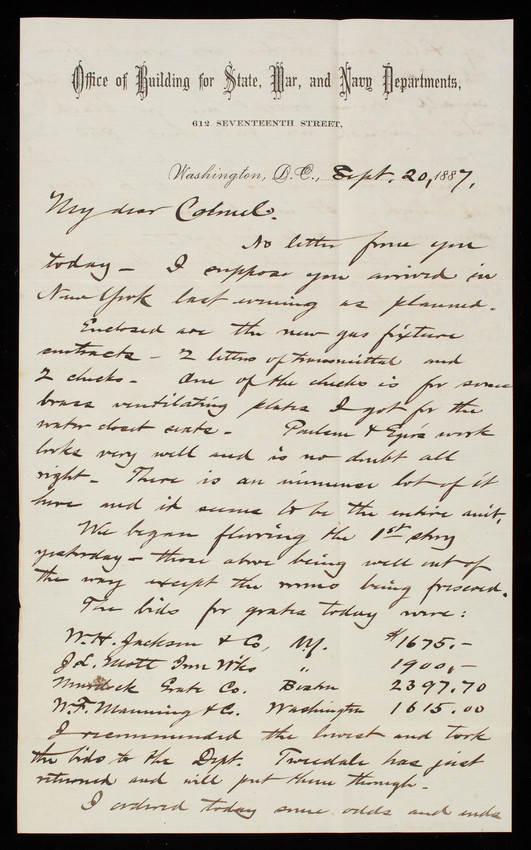 Office of Building for State, War, and Navy Departments,
612 SEVENTEENTH STREET,
Washington, D.C., Sept. 20, 1887,
My dear Colonel.
No letter from you
today – I suppose you arrived in
New York last evening as planned.
Enclosed are the new gas fixture
contracts – 2 letters of transmittal and
2 checks – One of the checks is for some
brass ventilating plates I got for the
water closet seats – Paulsen & Eger's work
looks very well and is no doubt all
right – There is an immense lot of it
here and it seems to be the entire suit.
We began flooring the 1st story
yesterday – those above being well out of
the way except the rooms being frescoed.
The bids for grates today were:
W. H. Jackson & Co, N.Y. $1675.–
J. L. Mott Iron Wks " 1900.–
Murdock Grate Co. Boston 2397.70
W. F. Manning & Co. Washington 1615.00
I recommended the lowest and took
the bids to the Dept. Tweedale has just
returned and will put them through –
I ordered today some odds and ends